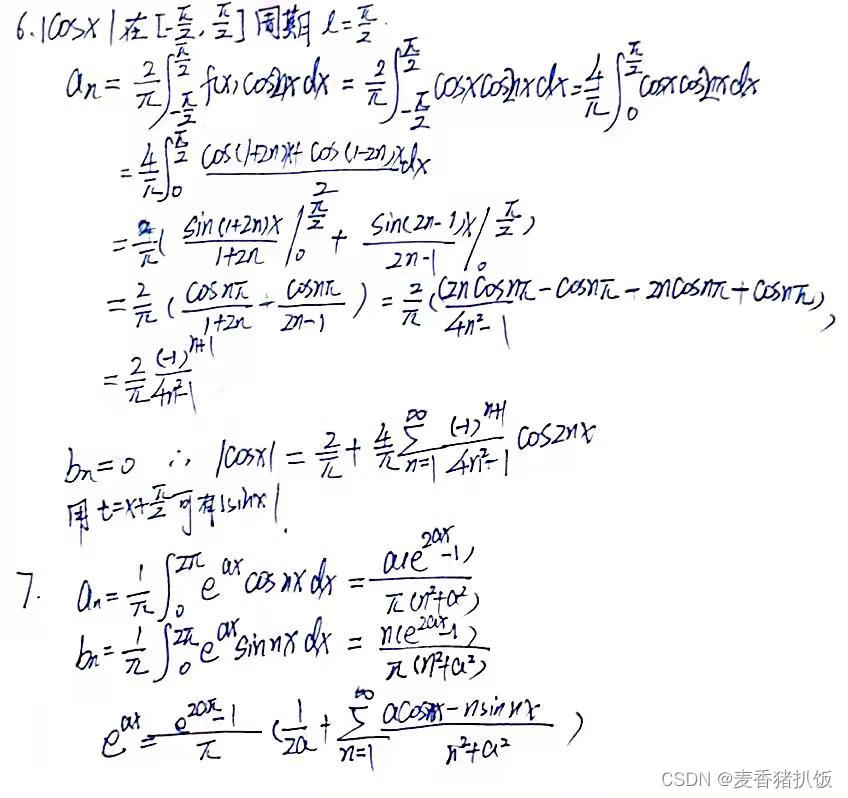 6. |cosx| 在 [-π/2, π/2] 周期 l = π/2.
aₙ = 2/π ∫_{-π/2}^{π/2} f(x) cos2nx dx = 2/π ∫_{-π/2}^{π/2} cosx cos2nx dx = 4/π ∫_0^{π/2} cosx cos2nx dx
= 4/π ∫_0^{π/2} (cos(1+2n)x + cos(1-2n)x)/2 dx
= 2/π ( sin(1+2n)x/(1+2n) |_0^{π/2} + sin(2n-1)x/(2n-1) |_0^{π/2} )
= 2/π ( cosnπ/(1+2n) - cosnπ/(2n-1) ) = 2/π ( (2ncosnπ - cosnπ - 2ncosnπ + cosnπ)/(4n²-1) ),
= 2/π (-1)^{n+1}/(4n²-1)
bₙ = 0 ∴ |cosx| = 2/π + 4/π ∑_{n=1}^{∞} (-1)^{n+1}/(4n²-1) cos2nx
用 t=x+π/2 可有|sinx|.
7. aₙ = 1/π ∫_0^{2π} e^{ax} cosnx dx = a(e^{2aπ}-1)/(π(n²+a²))
bₙ = 1/π ∫_0^{2π} e^{ax} sinnx dx = n(e^{2aπ}-1)/(π(n²+a²))
e^{ax} = (e^{2aπ}-1)/π ( 1/2a + ∑_{n=1}^{∞} (acosnx - nsinnx)/(n²+a²) )
CSDN @麦香猪扒饭